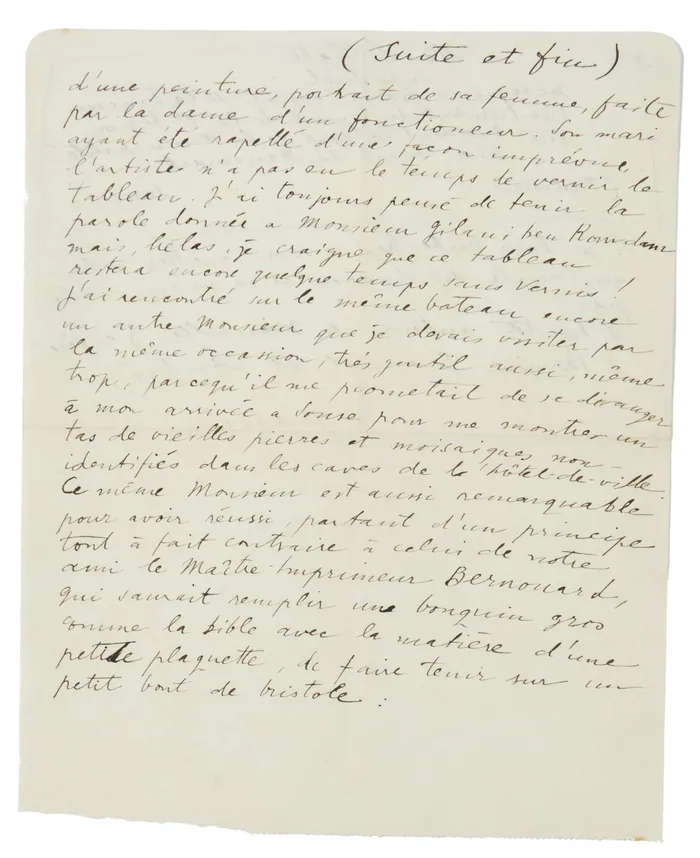 (Suite et fin)
d'une peinture, portrait de sa femme, faite
par la dame d'un fonctioneur. Son mari
ayant été rapellé d'une façon imprévue,
l'artiste n'a pas eu le temps de vernir le
tableau. J'ai toujours pensé de tenir la
parole donnée a Monsieur Gilani ben Romdam
mais, helas, je craigne que ce tableau
restera encore quelque temps sans vernis!
J'ai rencontré sur le même bateau encore
un autre Monsieur que je devais visiter par
la même occassion, trés gentil aussi, même
trop, parcequ'il me promettait de se déranger
à mon arrivée a Souse pour me montrer un
tas de vieilles pierres et moisaiques non-
identifiés dans les caves de l'hôtel-de-ville.
Ce même Monsieur est aussi remarquable
pour avoir réussi, partant d'un principe
tout à fait contraire à celui de notre
ami le Maître-Imprimeur Bernouard,
qui saurait remplir une bouquin gros
comme la bible avec la matière d'une
petite plaquette, de faire tenir sur un
petit bout de bristole :